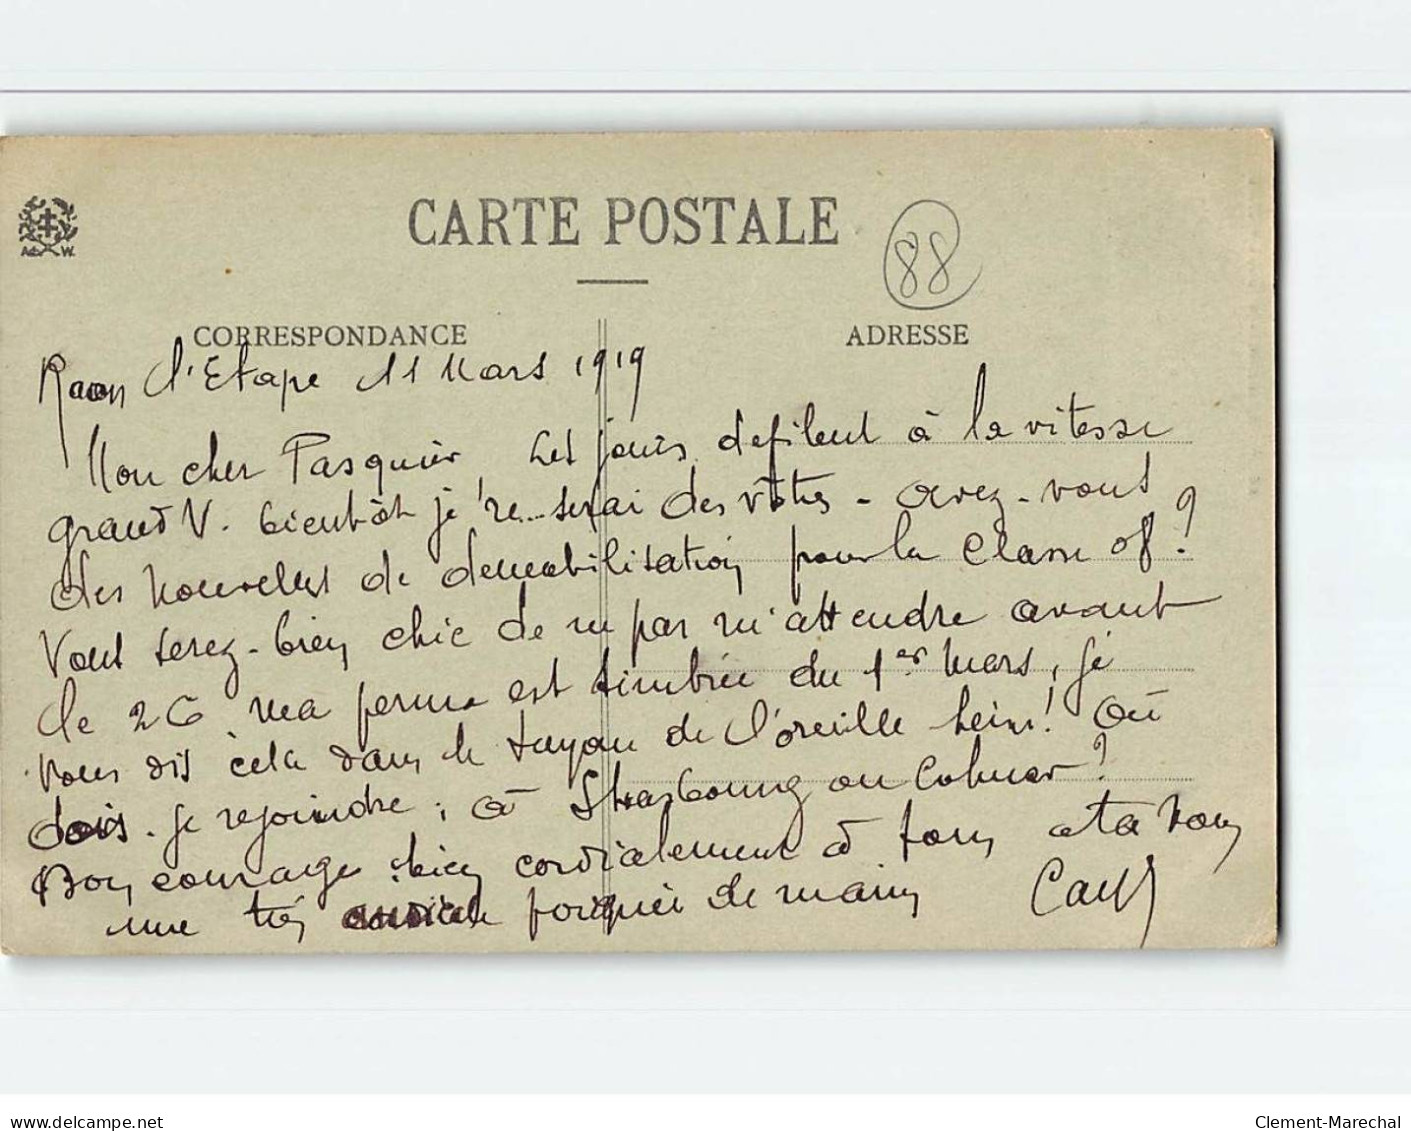 CARTE POSTALE
88
A. W.
CORRESPONDANCE
ADRESSE
Raon l'Etape 11 Mars 1919
Mon cher Pasquier, Les jours defilent à la vitesse
grand V. bientôt je re-serai des vôtres - avez-vous
des nouvelles de demobilisation pour la classe 08 ?
Vous serez-bien chic de m par m'attendre avant
le 26 ma perme est timbrée du 1er Mars, je
vous dis cela dans le tuyau de l'oreille hein ! Où
dois-je rejoindre, à Strasbourg ou Colmar ?
Bon courage bien cordialement à tous et à vous
une très cordiale poignée de main
delcampe.net
Clement-Marechal